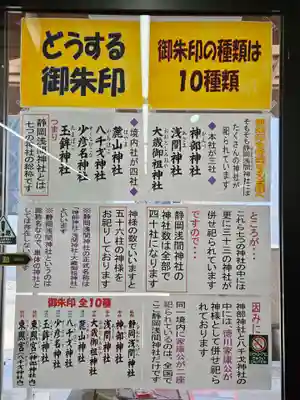 どうする
御朱印
御朱印の種類は
10種類
そもそも静岡浅間神社には
たくさんの神社が
祀られています
◆本社が三社◆
神部神社
浅間神社
大歳御祖神社
◆境内社が四社◆
麓山神社
八千戈神社
少彦名神社
玉鉾神社
つまり、
静岡浅間神社とは
七つの名社の総称です
ところが…
これら七つの神社の中には
更に三十三の神社が
併せ祀られています
ですので…
静岡浅間神社の
神社数は全部で
四十社になります
神様の数でいいますと
五十六柱の神様を
お祀りしております
※静岡浅間神社の正式名称は
「神部神社・浅間神社・大歳御祖神社」
といいます
※静岡浅間神社というのは
ちなみに
神部神社と八千戈神社
の中には、徳川家康公が
神様として併せ祀ら
れております
同じ境内に家康公が二座
祀られているのは、全国で
も静岡浅間神社だけです
御朱印 全10種
静岡浅間神社
神部神社
浅間神社
大歳御祖神社
麓山神社
八千戈神社
少彦名神社
玉鉾神社
東照宮(神部神社)
東照宮(八千戈神社)